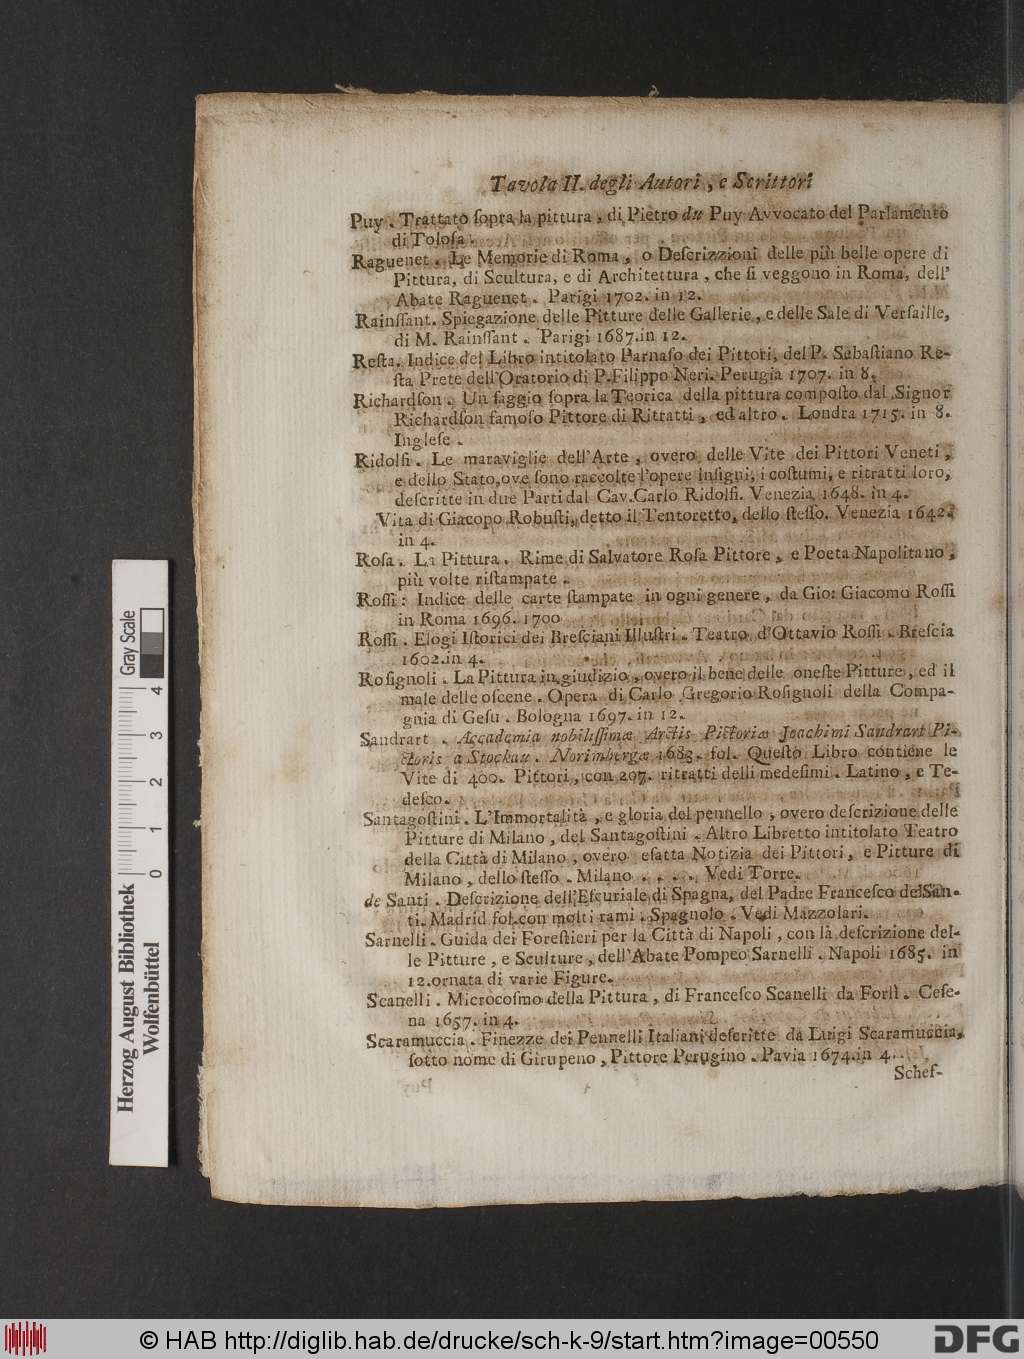 Tavola II. degli Autori, e Scrittori
Puy. Trattato ſopra la pittura, di Pietro du Puy Avvocato del Parlamento
di Toloſa.
Raguenet. Le Memorie di Roma, o Deſcrizzioni delle più belle opere di
Pittura, di Scultura, e di Architettura, che ſi veggono in Roma, dell'
Abate Raguenet. Parigi 1702. in 12.
Rainſſant. Spiegazione delle Pitture delle Gallerie, e delle Sale di Verſaille,
di M. Rainſſant. Parigi 1687. in 12.
Reſta. Indice del Libro intitolato Parnaſo dei Pittori, del P. Sabaſtiano Re-
ſta Prete dell'Oratorio di P. Filippo Neri. Perugia 1707. in 8.
Richardſon. Un ſaggio ſopra la Teorica della pittura compoſto dal Signor
Richardſon famoſo Pittore di Ritratti, ed altro. Londra 1715. in 8.
Ingleſe.
Ridolfi. Le maraviglie dell'Arte, overo delle Vite dei Pittori Veneti,
e dello Stato, ove ſono raccolte l'opere inſigni, i coſtumi, e ritratti loro,
deſcritte in due Parti dal Cav. Carlo Ridolfi. Venezia 1648. in 4.
Vita di Giacopo Robuſti, detto il Tentoretto, dello ſteſſo. Venezia 1642.
in 4.
Roſa. La Pittura. Rime di Salvatore Roſa Pittore, e Poeta Napolitano,
più volte riſtampate.
Roſſi: Indice delle carte ſtampate in ogni genere, da Gio: Giacomo Roſſi
in Roma 1696. 1700
Roſſi. Elogi Iſtorici dei Breſciani Illuſtri. Teatro d'Ottavio Roſſi. Breſcia
1602. in 4.
Roſignoli. La Pittura in giudizio, overo il bene delle oneſte Pitture, ed il
male delle oſcene. Opera di Carlo Gregorio Roſignoli della Compa-
gnia di Geſu. Bologna 1697. in 12.
Sandrart. Accademia nobiliſſimæ Arctis Pictoriæ Joachimi Sandrart Pi-
ctoris a Stockau. Norimbergæ 1683. fol. Queſto Libro contiene le
Vite di 400. Pittori, con 207. ritratti delli medeſimi. Latino, e Te-
deſco.
Santagoſtini. L'Immortalità, e gloria del pennello, overo deſcrizione delle
Pitture di Milano, del Santagoſtini. Altro Libretto intitolato Teatro
della Città di Milano, overo eſatta Notizia dei Pittori, e Pitture di
Milano, dello ſteſſo. Milano . . . . Vedi Torre.
de Santi. Deſcrizione dell'Eſcuriale di Spagna, del Padre Franceſco de San-
ti. Madrid fol. con molti rami. Spagnolo. Vedi Mazzolari.
Sarnelli. Guida dei Foreſtieri per la Città di Napoli, con là deſcrizione del-
le Pitture, e Sculture, dell'Abate Pompeo Sarnelli. Napoli 1685. in
12. ornata di varie Figure.
Scanelli. Microcoſmo della Pittura, di Franceſco Scanelli da Forlì. Ceſe-
na 1657. in 4.
Scaramuccia. Finezze dei Pennelli Italiani deſcritte da Luigi Scaramuccia,
ſotto nome di Girupeno, Pittore Perugino. Pavia 1674. in 4.
Schef-
Gray Scale
0 1 2 3 4
Herzog August Bibliothek
Wolfenbüttel
© HAB http://diglib.hab.de/drucke/sch-k-9/start.htm?image=00550
DFG